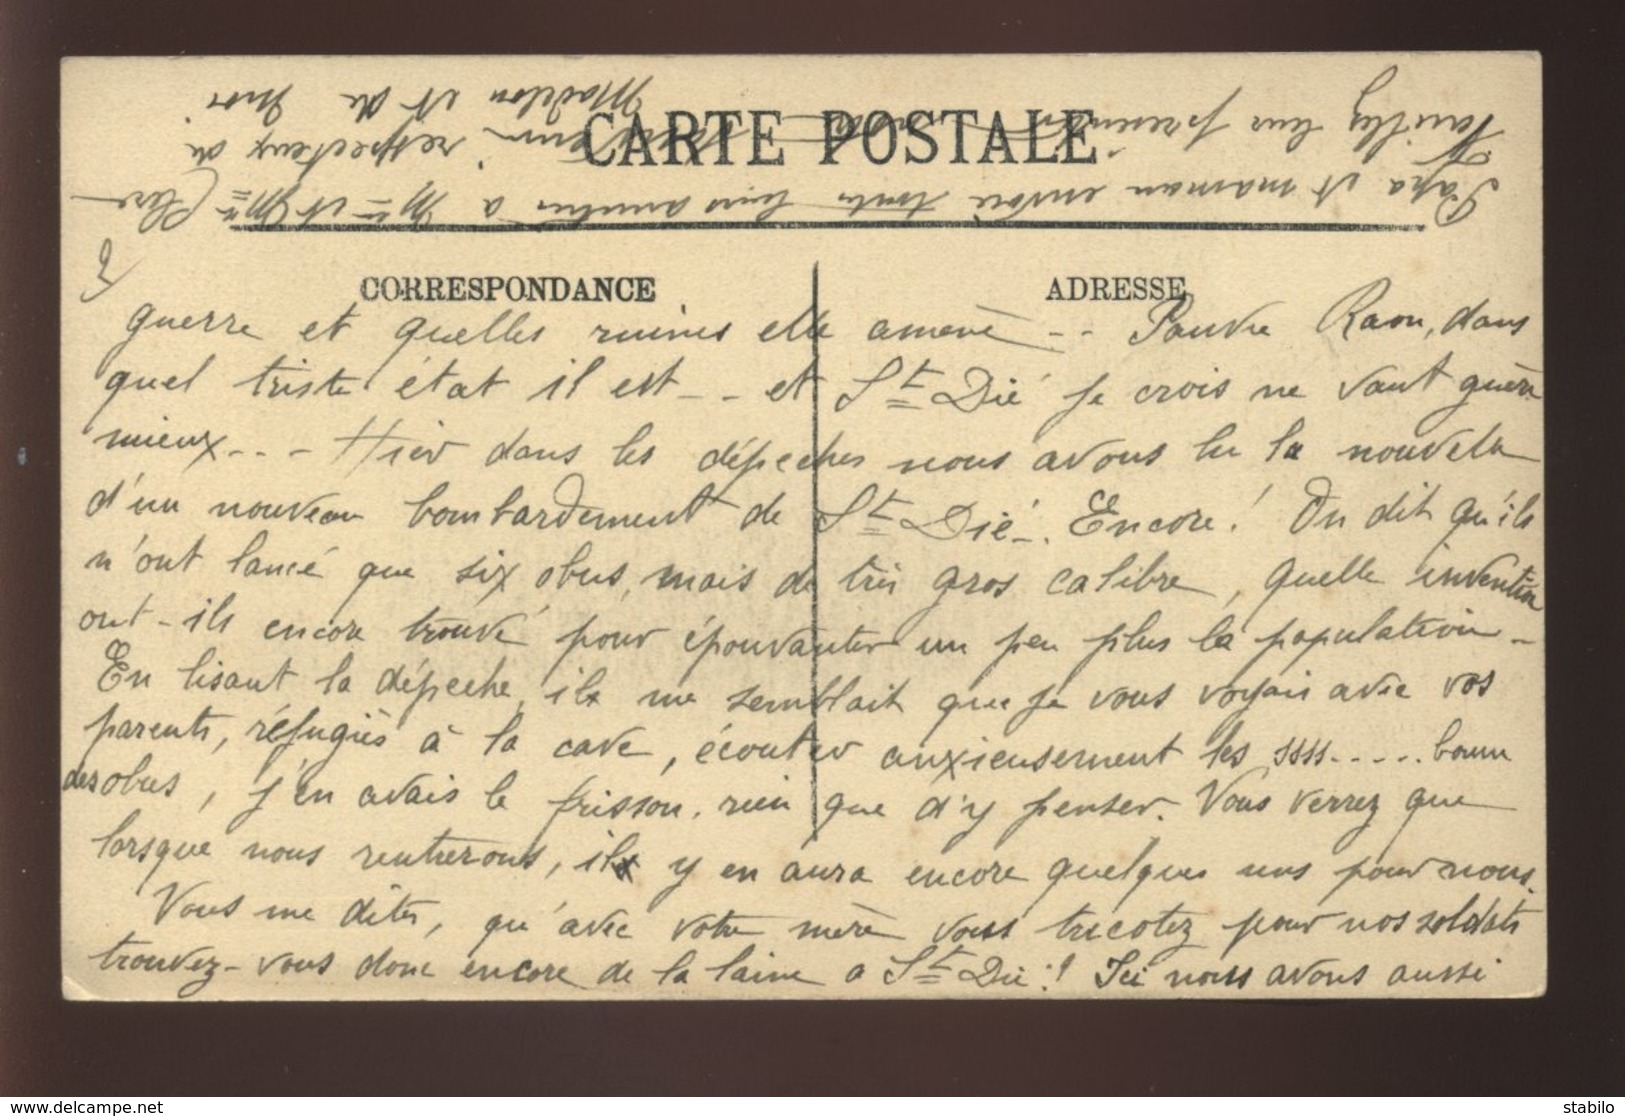 CARTE POSTALE
CORRESPONDANCE
ADRESSE
guerre et quelles ruines elle amène -- Pauvre Raon, dans
quel triste état il est -- et St Dié je crois ne vaut guère
mieux -- - Hier dans les dépeches nous avons lu la nouvelle
d'un nouveau bombardement de St Dié. Encore! On dit qu'ils
n'ont lancé que six obus, mais de très gros calibre, quelle invention
ont-ils encore trouvé pour épouvanter un peu plus la population -
En lisant la dépeche, il me semblait que je vous voyais avec vos
parents, réfugiés à la cave, écouter anxieusement les ssss..... boum
des obus, j'en avais le frisson, rien que d'y penser. Vous verrez que
lorsque nous rentrerons, il y en aura encore quelques uns pour nous.
Vous me dites, qu'avec votre mère vous tricotez pour nos soldats
trouvez-vous donc encore de la laine a St Dié!! Ici nous avons aussi
Papa et maman envoie toutes leurs amitiés a Mme et Melle Claire
Veuillez leur présenter respectueux de
Madelon et de moi
stabilo
www.delcampe.net